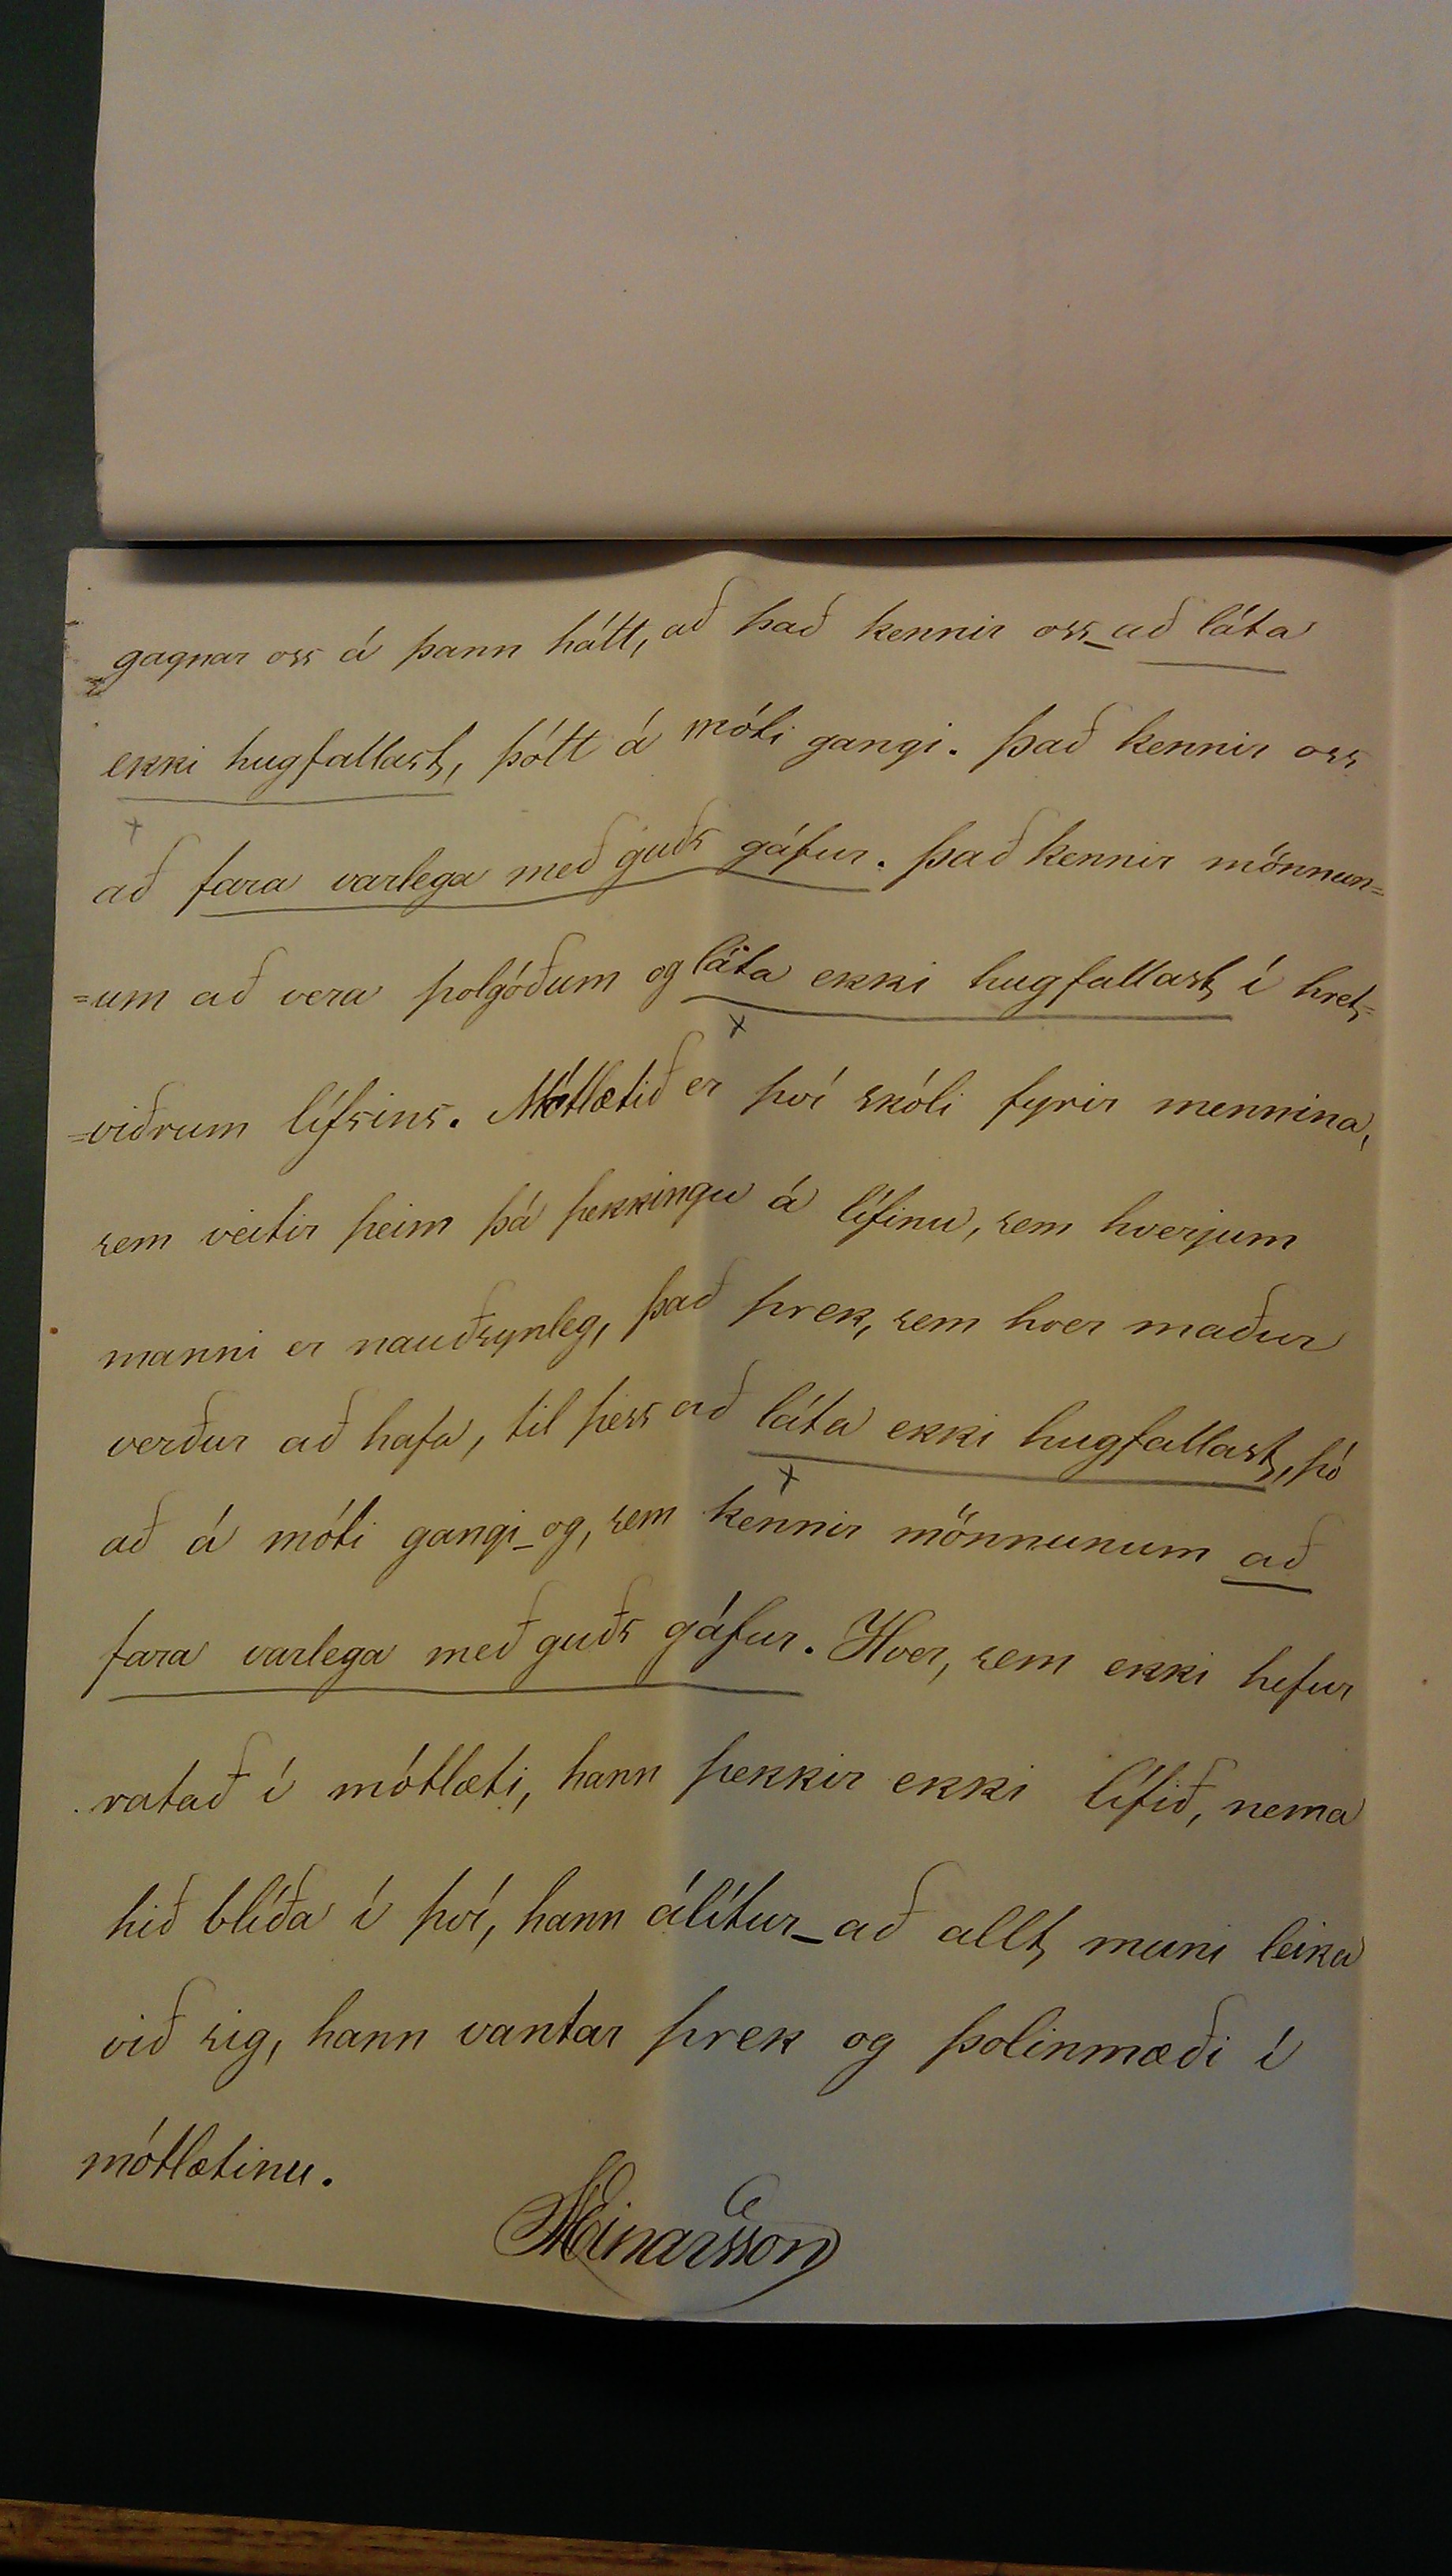 gagnar oss á þann hátt, að það kennir oss_að láta
ekki hugfallast, þótt á móti gangi. Það kennir oss
að fara varlega með guðs gáfur. Það kennir mönnun=
=um að vera þolgóðum og láta ekki hugfallast í hret=
=viðrum lífsins. Mótlætið er því skóli fyrir mennina,
sem veitir þeim þá þekkingu á lífinu, sem hverjum
manni er nauðsynleg, það þrek, sem hver maður
verður að hafa, til þess að láta ekki hugfallast, þó
að á móti gangi_og, sem kennir mönnunum að
fara varlega með guðs gáfur. Hver, sem ekki hefur
ratað í mótlæti, hann þekkir ekki lífið, nema
hið blíða í því, hann álítur_að allt muni leika
við sig, hann vantar þrek og þolinmæði í
mótlætinu.
Einarsson